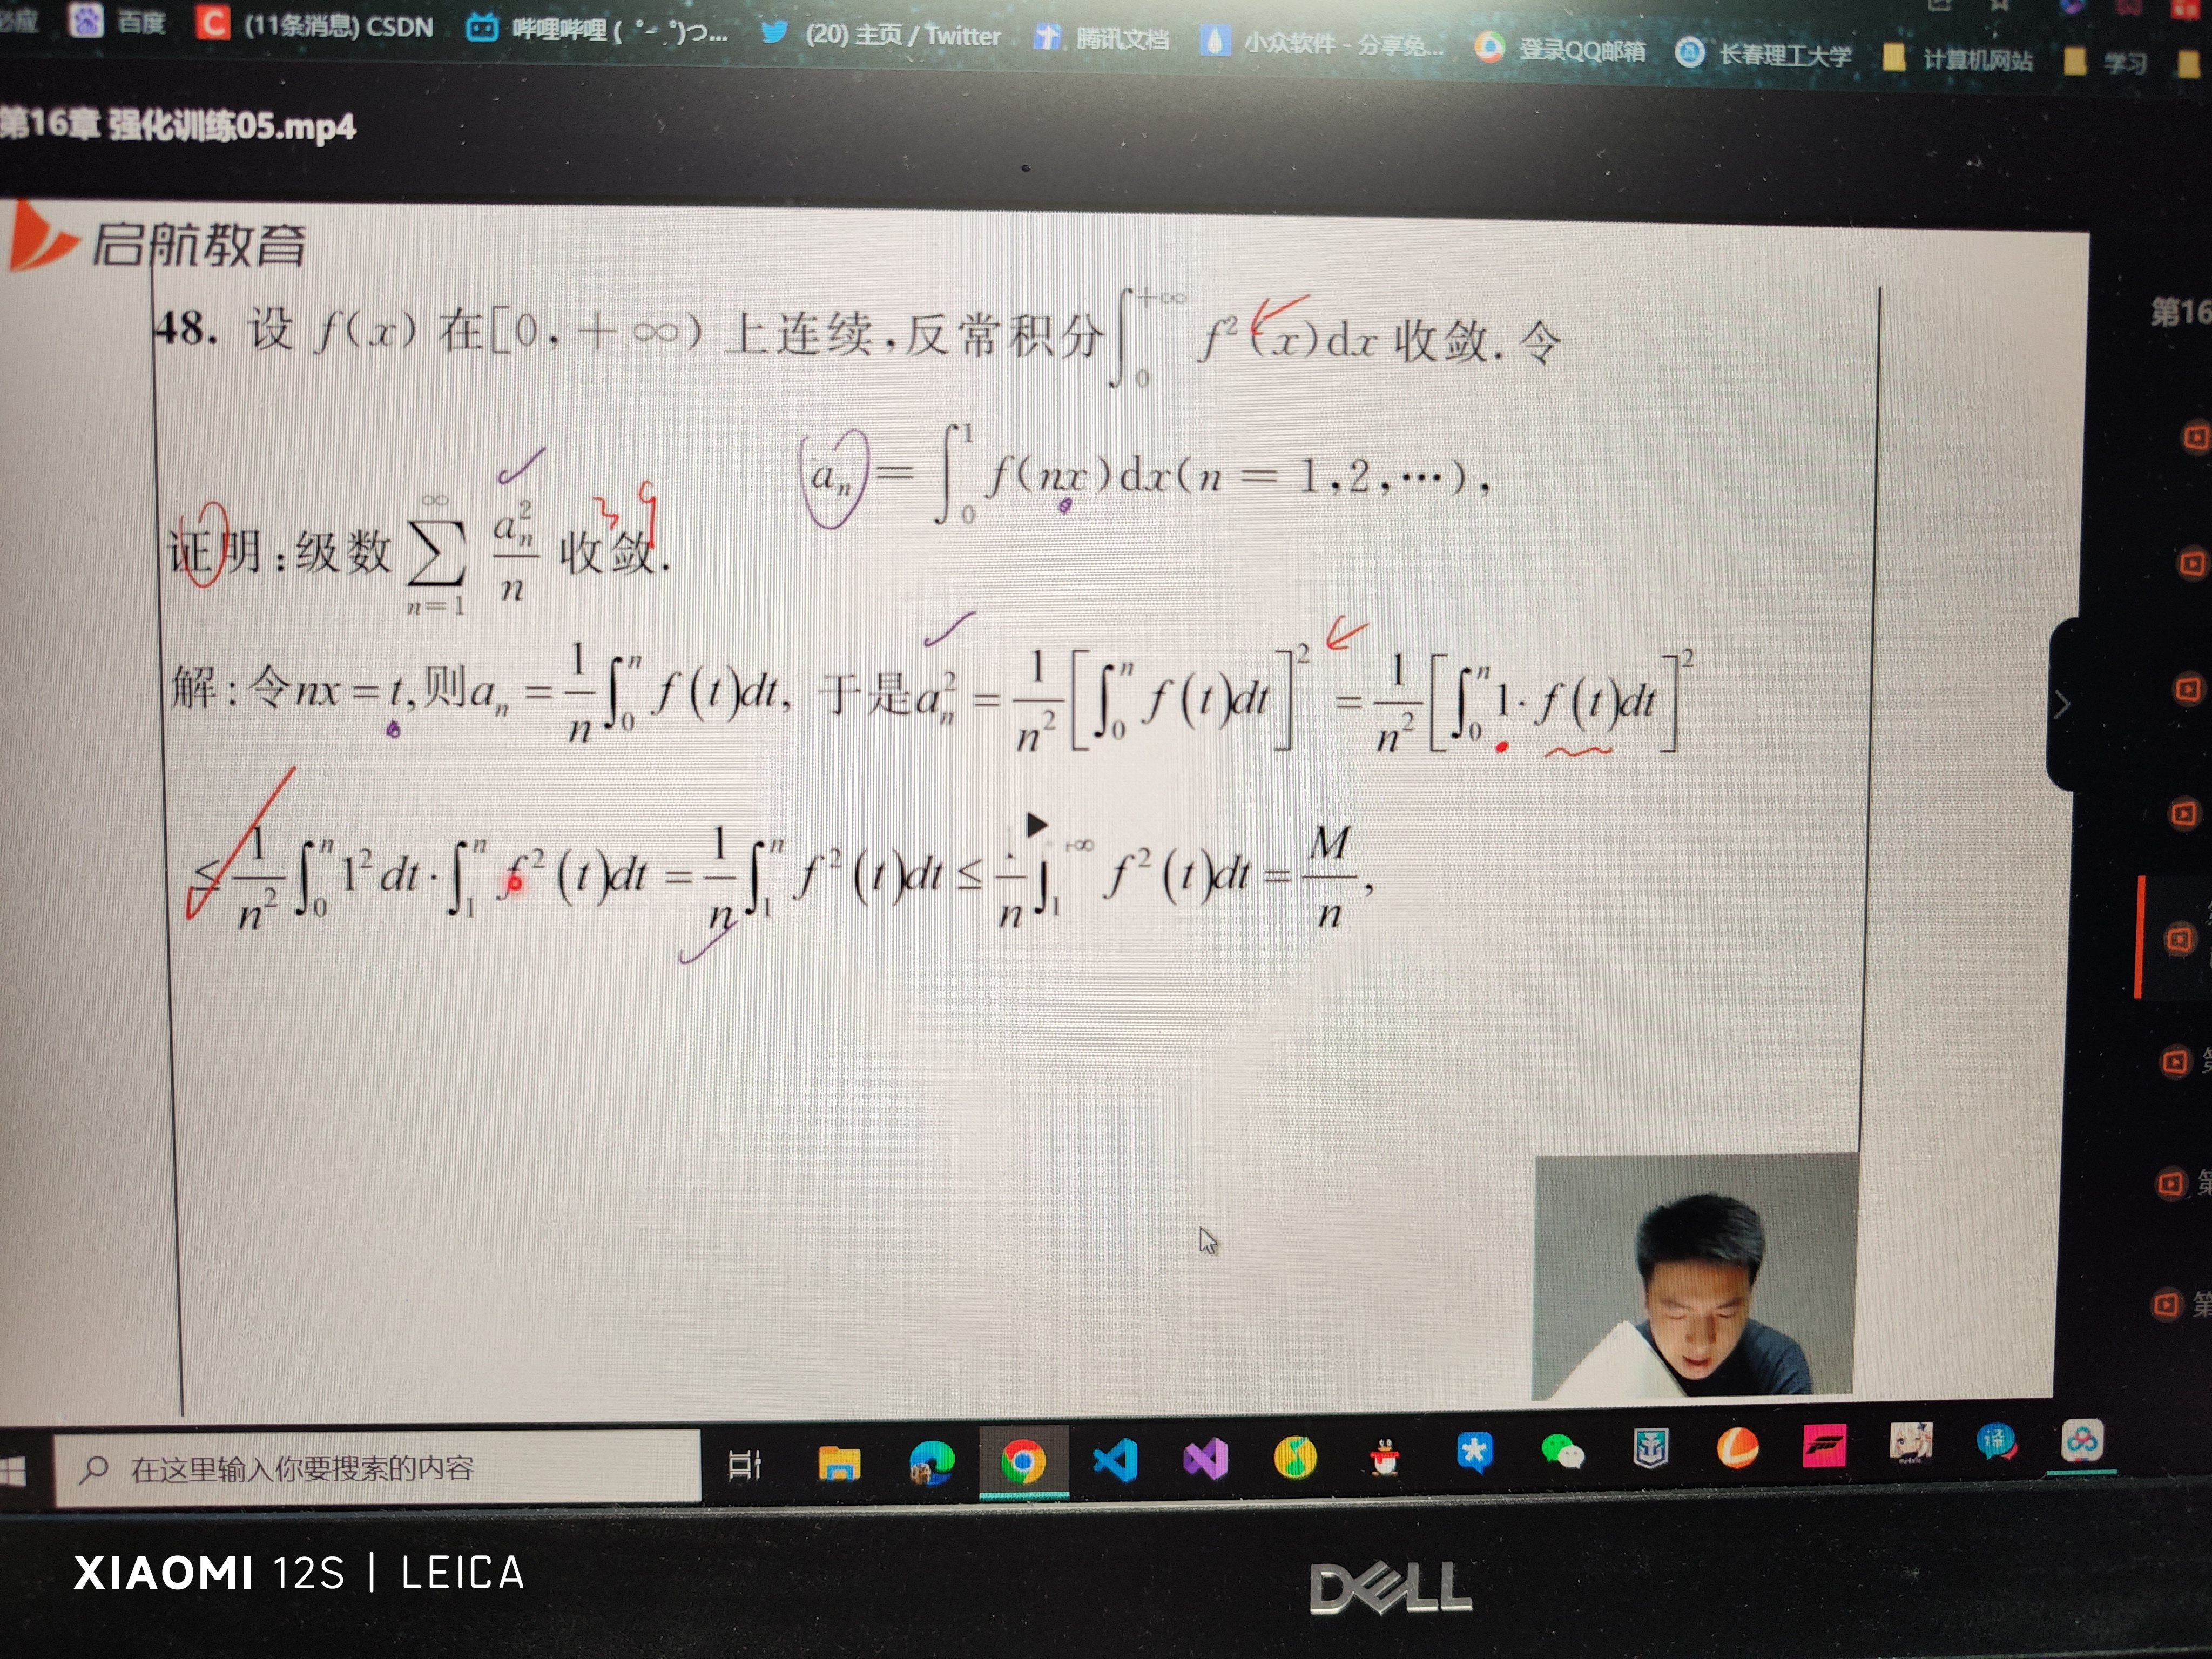 百度 (11条消息) CSDN 哔哩哔哩 ( ゜- ゜)つ... (20) 主页 / Twitter 腾讯文档 小众软件 - 分享免... 登录QQ邮箱 长春理工大学 计算机网站 学习
第16章 强化训练05.mp4
启航教育
第16
48. 设 f(x) 在[0, +∞) 上连续,反常积分∫₀^{+∞} f²(x)dx 收敛. 令
aₙ = ∫₀¹ f(nx)dx(n = 1,2,⋯),
证明:级数 ∑_{n=1}^{∞} aₙ²/n 收敛.
解:令nx = t,则aₙ = 1/n ∫₀ⁿ f(t)dt, 于是aₙ² = 1/n² [∫₀ⁿ f(t)dt]² = 1/n² [∫₀ⁿ 1·f(t)dt]²
≤ 1/n² ∫₀ⁿ 1²dt · ∫₁ⁿ f²(t)dt = 1/n ∫₁ⁿ f²(t)dt ≤ 1/n ∫₁^{+∞} f²(t)dt = M/n,
在这里输入你要搜索的内容
译
XIAOMI 12S | LEICA
DELL